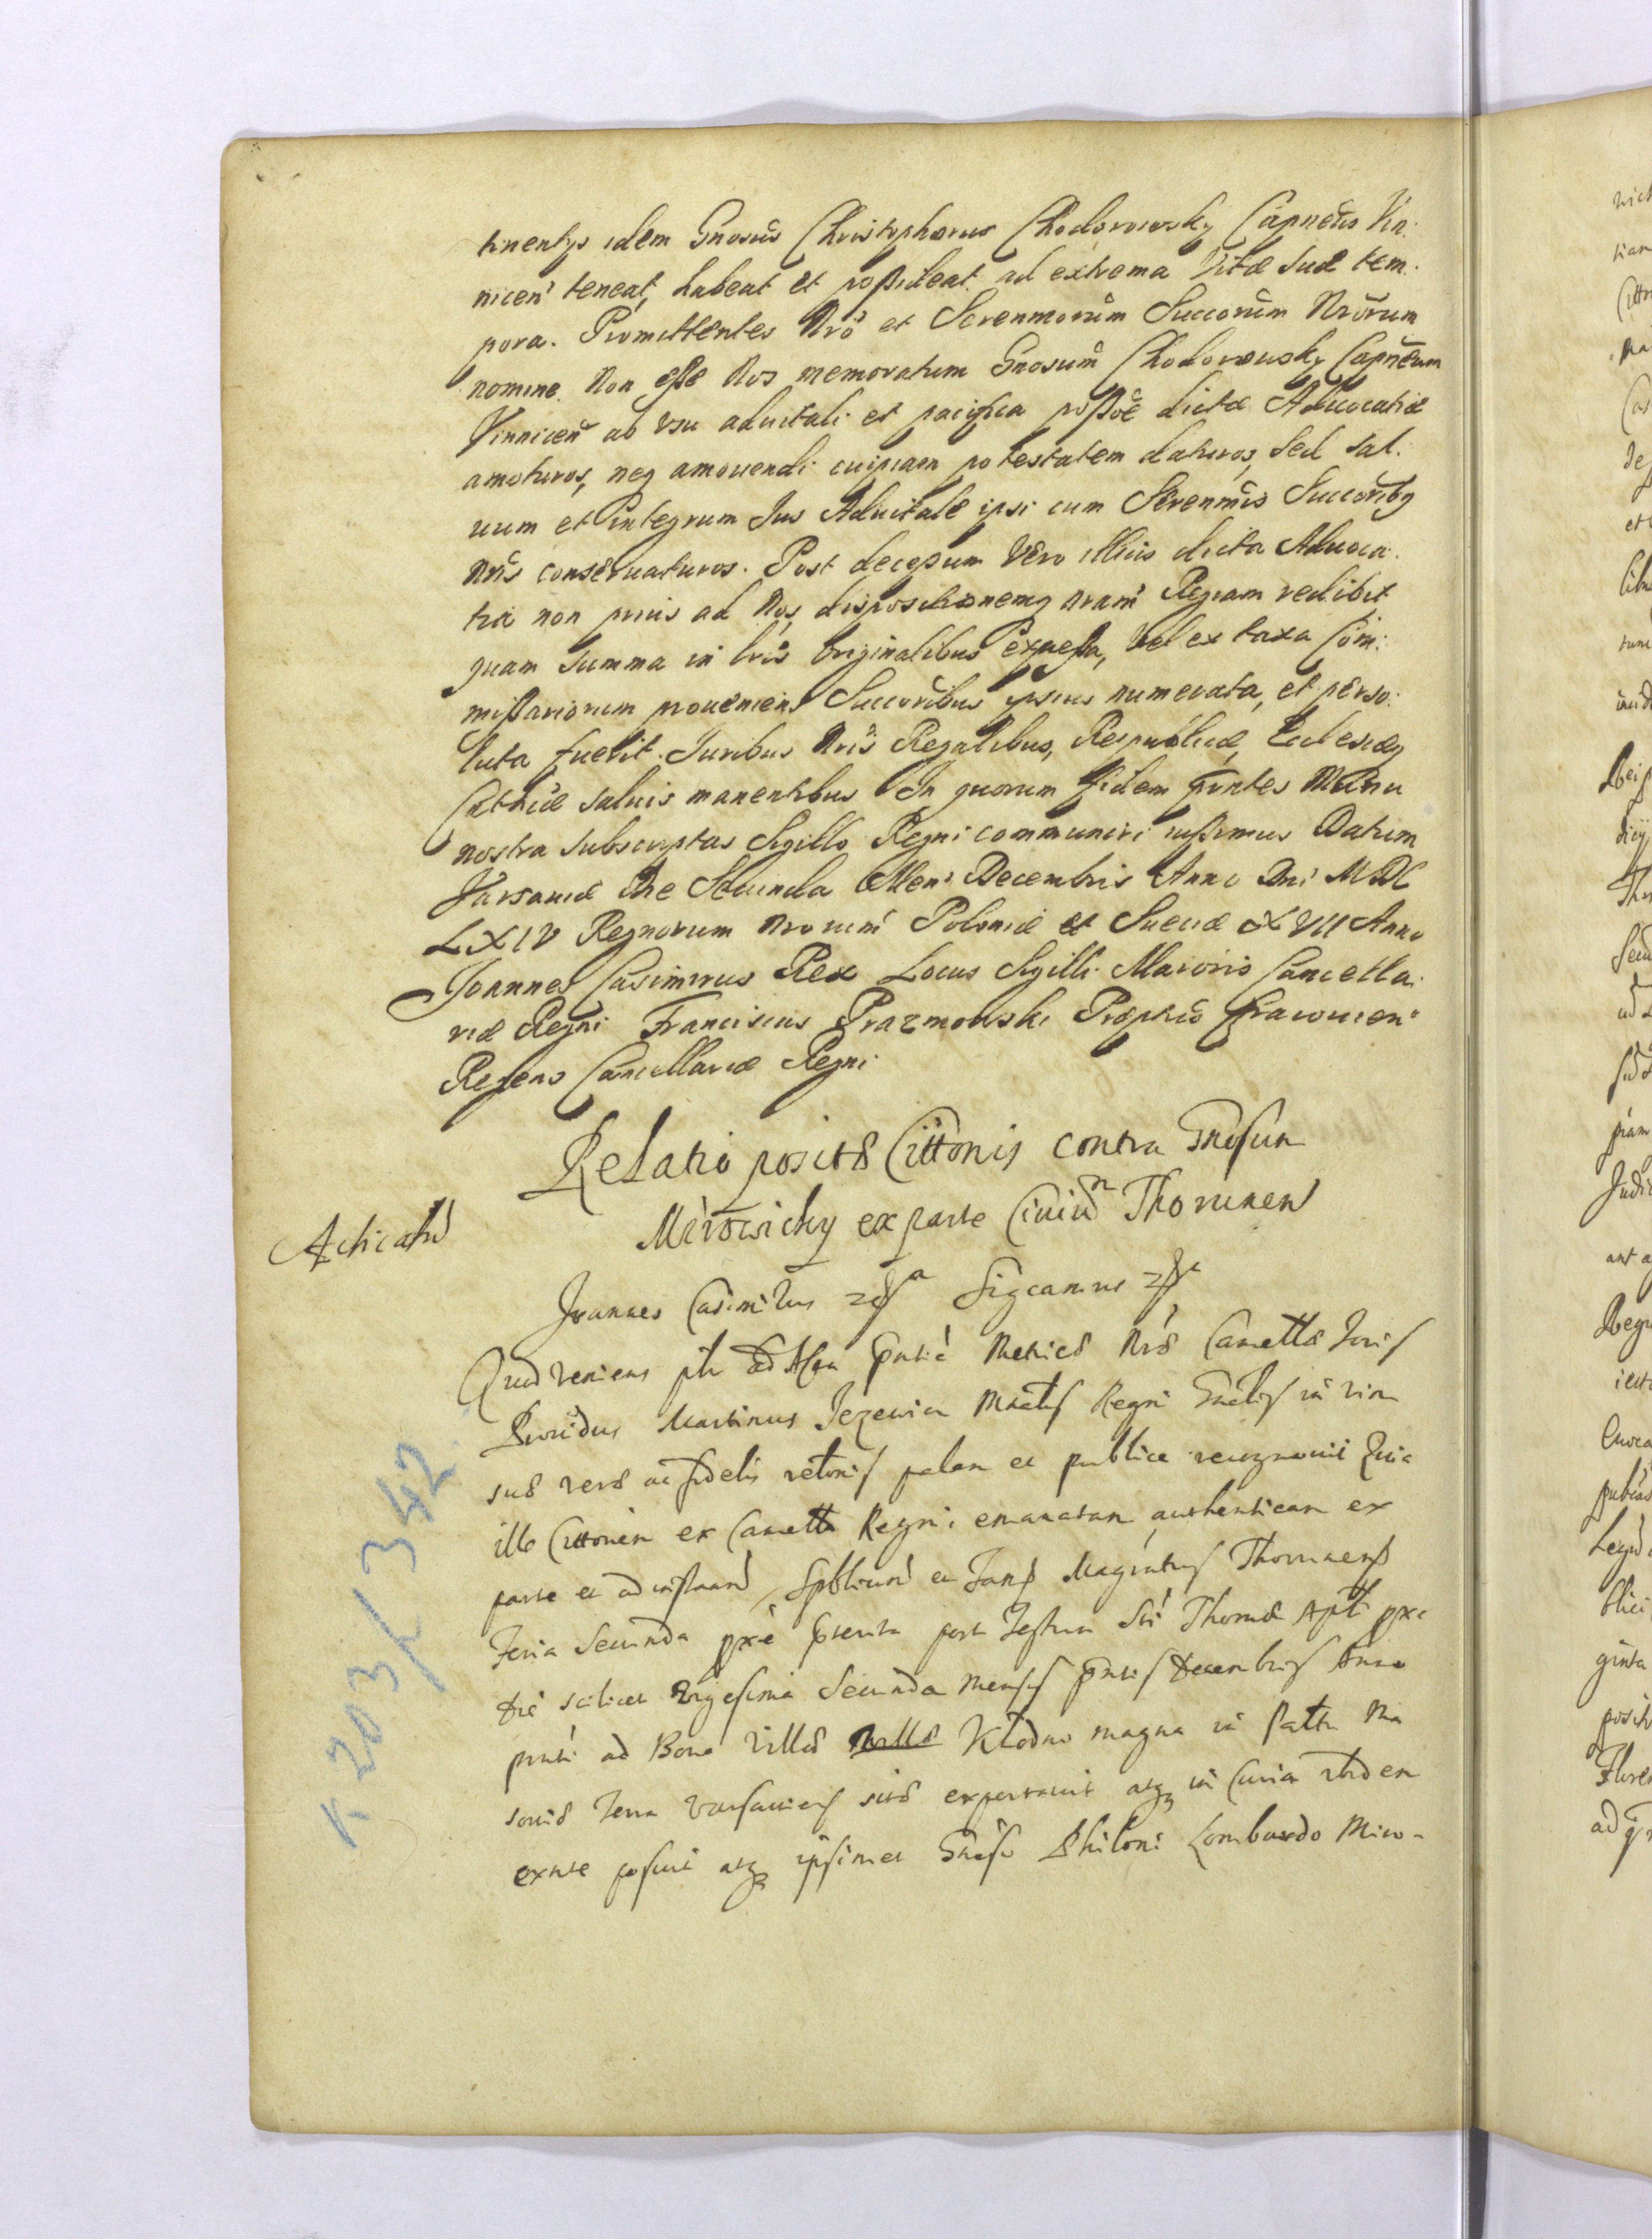 tinentys idem Gnosus Christophorus Chodorowsky Capneus Vin:
nicen teneat, habeat et possideat ad extrema Vitæ suæ tem:
pora. Promittentes Nro et Serenmorum Succorum Nrorum
nomine. Non esse Nos memoratum Gnosum Chodorowsky Capneum
Vinnicen ab vsu aduitali et pacifica possoe dictæ Aduocatiæ
amoturos, neq amouendi cuipiam potestatem daturos, Sed sal:
uum et integrum Jus Aduitale ipsi cum Serenmis Succoribq
Nris conseruaturos. Post decessum Vero illius dicta Aduoca:
tia non prius ad Nos, dispositionemq nram Regiam redibit
quam summa in lris Originalibus expressa, Vel ex taxa Com:
missariorum proueniens Succoribus ipsius numerata, et perso:
luta fuerit. Juribus Nris Regalibus, Reipublicæ, Eclesiæq
Catholicæ saluis manentibus In quorum fidem pntes Manu
nostra subscriptas Sigillo Regni communiri iussimus Datum
Varsauiæ Die Secunda Mens Decembris Anno Dni MDC
LXIV Regnorum Nrorum Poloniæ et Sueciæ XVII Anno
Joannes Casimirus Rex Locus Sigilli Maioris Cancella:
riæ Regni Franciscus Prazmowski Præptus Cracouien
Regens Cancellariæ Regni
Relatio positæ Cittonis contra Gnosum
Mirowicky ex parte Ciuium Thorunen
Acticatio
Joannes Casimirus Sigcamus
Quod veniens ad Acta pntia Metrices Nræ Cancellæ
Prouidus Martinus Jezewicz Regni Gnelis in vim
suæ veræ ac fidelis relonis palam et publice recognouit Quia
ille Cittonem ex Cancella Regni emanatam authenticam ex
parte et ad instantiam Spblium et Fam Magratus Thorunens
Feria Secunda pxe post Festum Sti Thomæ Apli pxe
die scilicet vigesima Secunda mensis pntis Decembris Anno
pnti ad Bona Villæ Villæ Kłodno magna in Pallu Ma
souiæ Terra Varsauiens sitæ exportauit atq in Curia ibidem
exnte posuit atq ipsimet Gnoso Philoni Lombardo Miro-
K 203/342